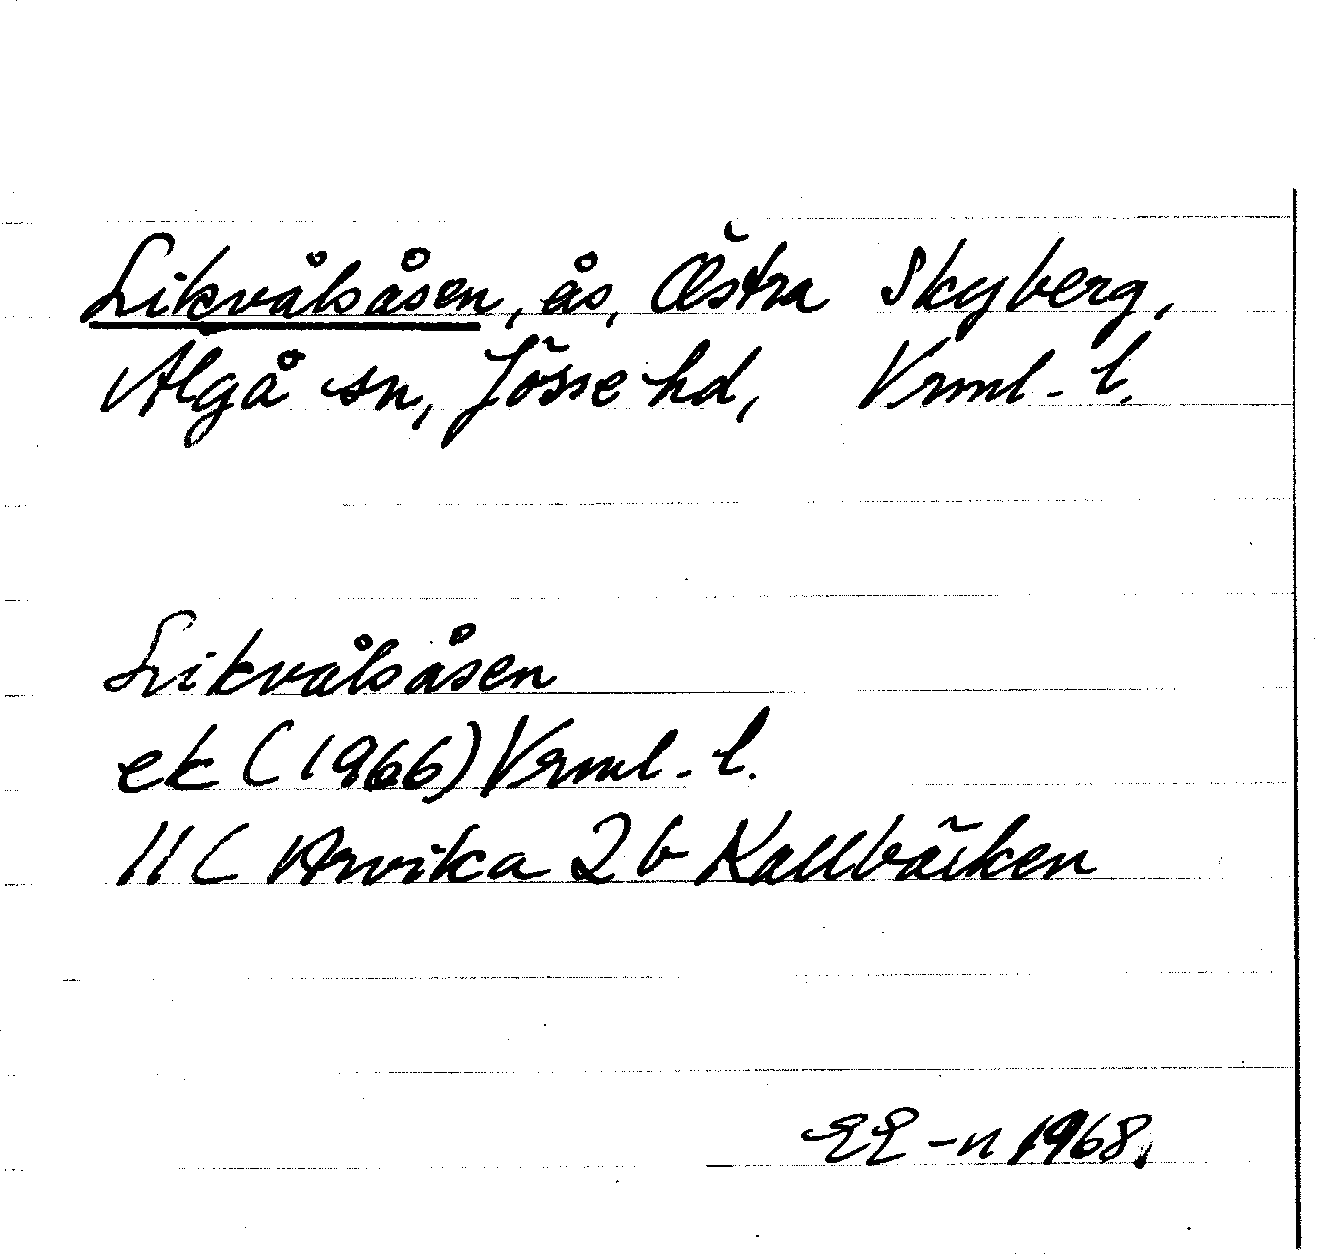 Likvålsåsen, ås, Östra Skyberg,
Älgå sn, Jösse hd, Vrml. l.
Likvålsåsen
ek (1966) Vrml. l.
11C Arvika 2b Kallbäcken
EE-n 1968.